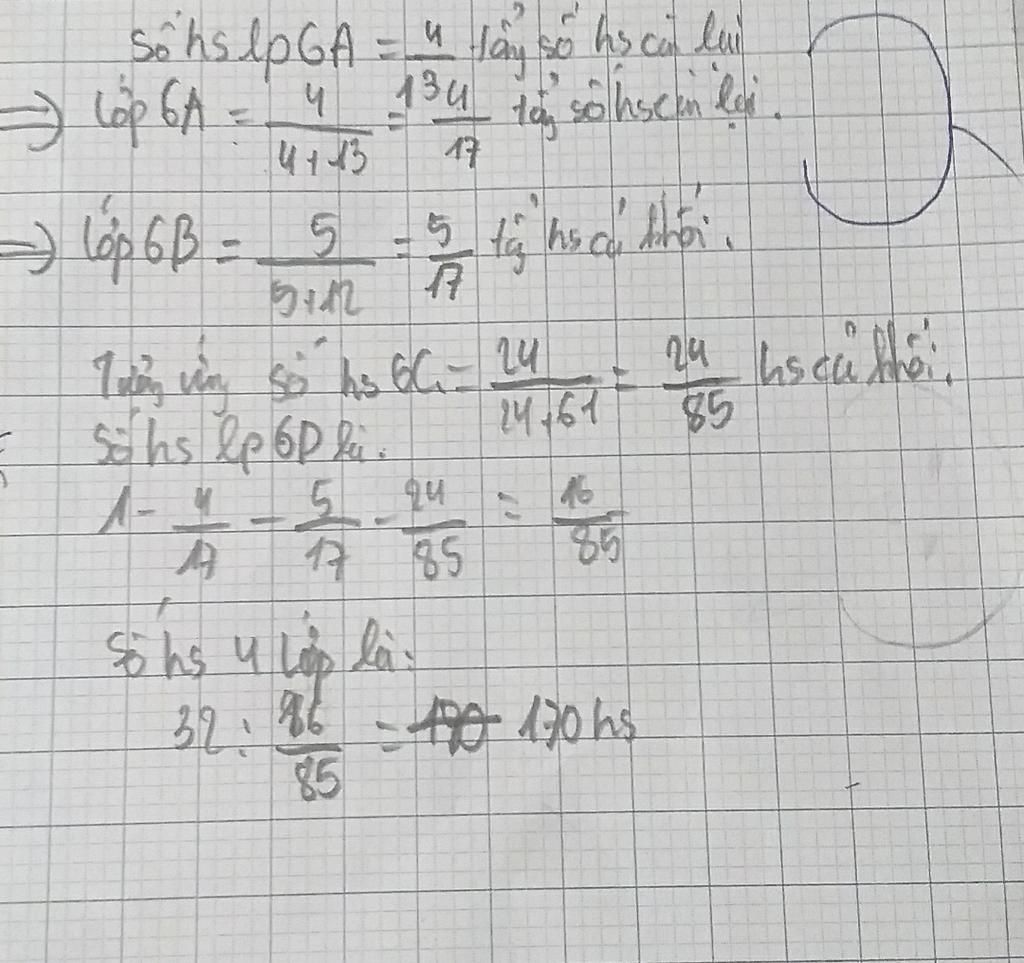 Số hs lp 6A = 4/13 tổng số hs còn lại
=> lớp 6A = 4/4+13 = 4/17 tổng số hs còn lại.
=> lớp 6B = 5/5+12 = 5/17 tổng hs cả khối.
Tương ứng số hs 6C = 24/24+61 = 24/85 hs cả khối.
Số hs lp 6D là:
1 - 4/17 - 5/17 - 24/85 = 16/85
Số hs 4 lớp là:
32 : 16/85 = 170 hs